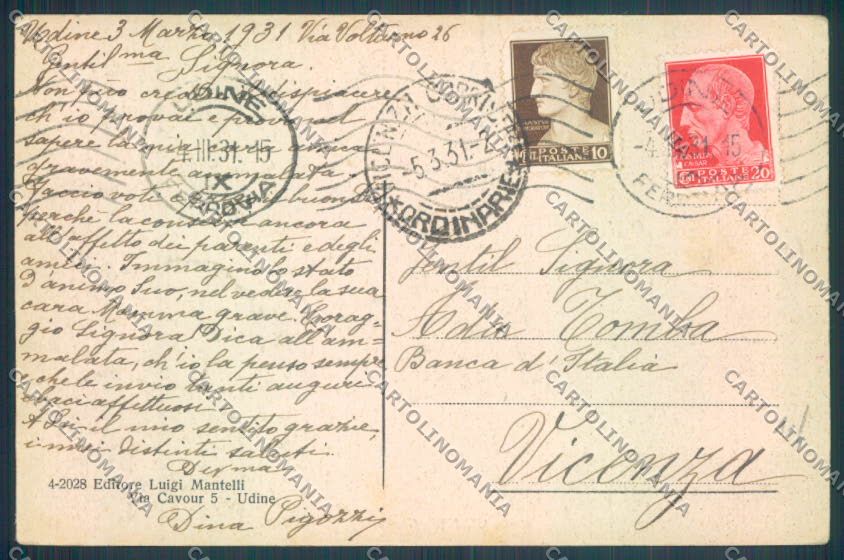 Udine 3 Marzo 1931 Via Volturno 26
Gentilma Signora.
Non può credere il dispiacere
ch'io provai e provo nel
sapere la mia cara amica
gravemente ammalata.
Faccio voti a Dio
perchè la conservi ancora
all'affetto dei parenti e degli
amici. Immagino lo stato
d'animo Suo, nel vedere la sua
cara Mamma grave. Corag-
gio Signora Dica all'am-
malata, ch'io la penso sempre,
che le invio tanti auguri
baci affettuosi.
A Lei il mio sentito grazie,
i miei distinti saluti.
Dev.ma
Dina Pigozzi
4-2028 Editore Luigi Mantelli
Via Cavour 5 - Udine
UDINE
4.III.31.15
FERROVIA
VICENZA
-5.3.31.-
ORDINARIE
POSTE
ITALIANE 10
POSTE
ITALIANE 20
Gentil Signora
Adia Tomba
Banca d'Italia
Vicenza
CARTOLINOMANIA